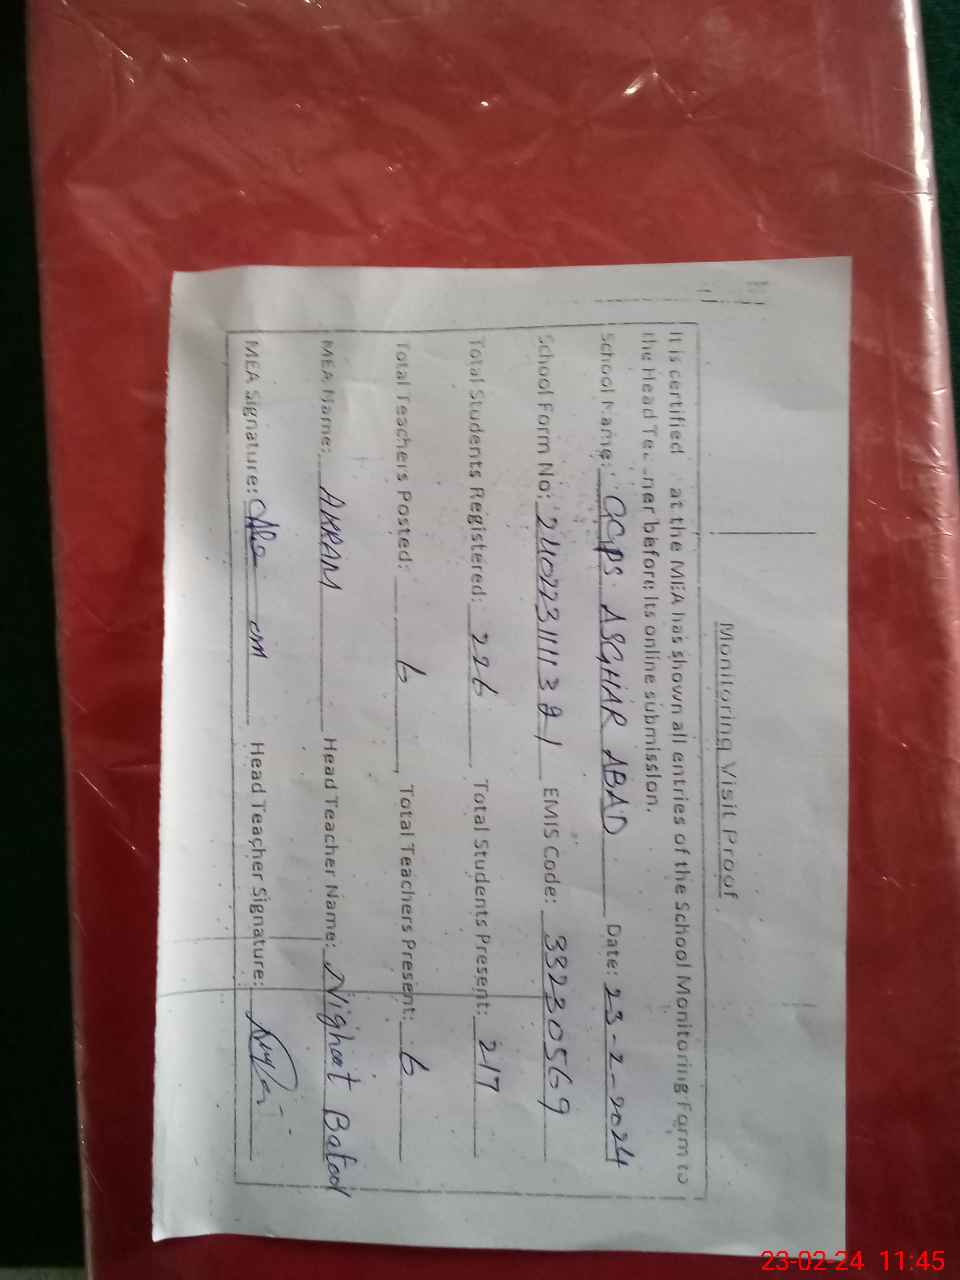 Monitoring Visit Proof
It is certified at the MEA has shown all entries of the School Monitoring Form to
the Head Te ner before its online submission.
School Name: GCPS ASGHAR ABAD Date: 23-2-2024
School Form No: EMIS Code: 33230569
Total Students Registered: 226 Total Students Present: 217
Total Teachers Posted: 6 Total Teachers Present: 6
MEA Name: AKRAM Head Teacher Name: Nighat Batool
MEA Signature: Head Teacher Signature:
23-02-24 11:45